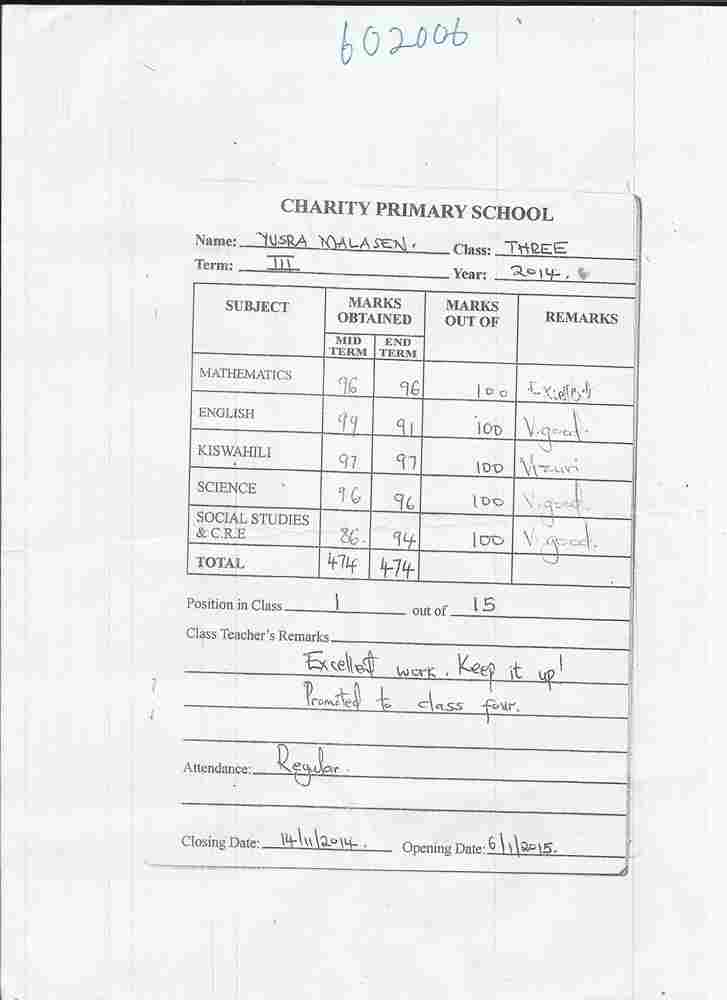 602006
CHARITY PRIMARY SCHOOL
Name: YUSRA MALASEN. Class: THREE
Term: III Year: 2014.
SUBJECT MARKS OBTAINED MARKS OUT OF REMARKS
MID TERM END TERM
MATHEMATICS 96 96 100
ENGLISH 99 91 100 V.good.
KISWAHILI 97 97 100 Vizuri
SCIENCE 96 96 100 V.good.
SOCIAL STUDIES & C.R.E 86. 94 100 V.good.
TOTAL 474 474
Position in Class 1 out of 15
Class Teacher's Remarks
Excellent work. Keep it up!
Promoted to class four.
Attendance: Regular.
Closing Date: 14/11/2014. Opening Date: 6/1/2015.